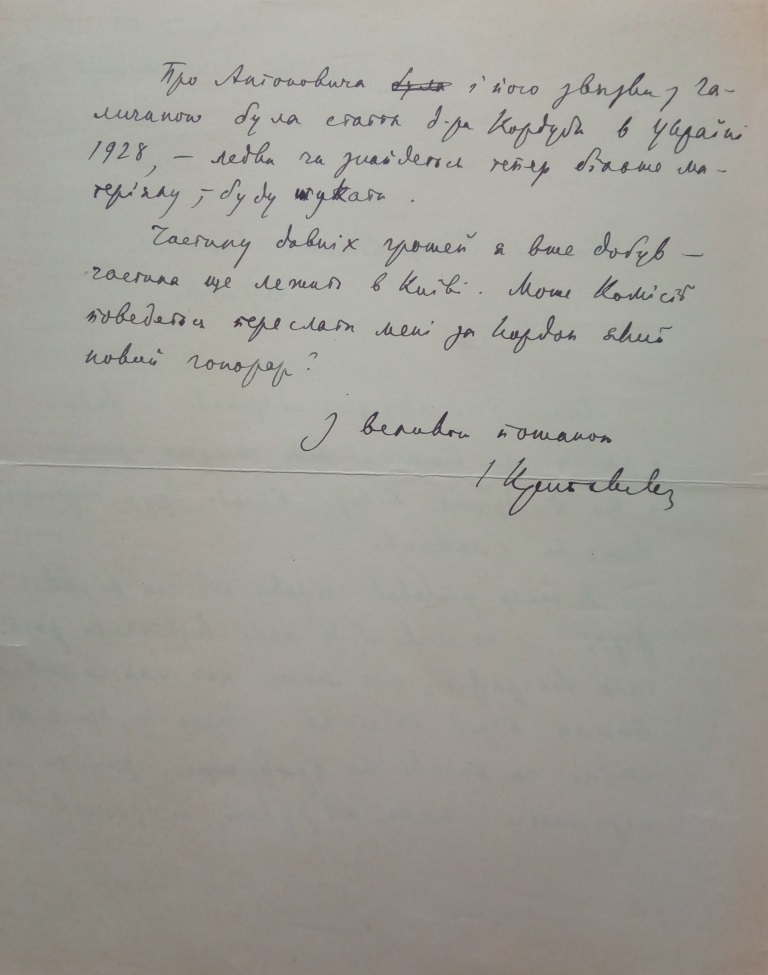 Про Антоновича була і його звязки з Га-
личаною була стаття д-ра Кордуби в Україні
1928, — ледви чи знайдеться тепер більше ма-
теріялу, — буду шукати.
Частину давніх грошей я вже добув —
частина ще лежить в Київі. Може Комісії
поведеться переслати мені за кордон який
новий гонорар?
З великою пошаною
І Крипякевич